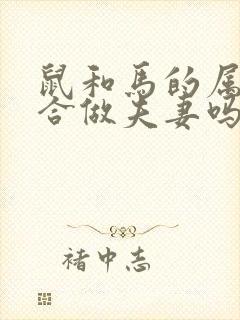 鼠和马的属
合做夫妻吗
褚中志